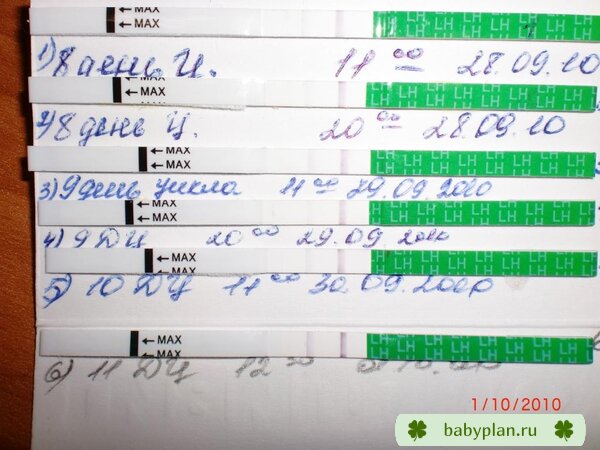 MAX
MAX
LH LH LH LH LH LH LH
1) 8 день Ц. 11 00 28.09.10
MAX
LH LH LH LH LH LH LH
2) 8 день Ц. 20 00 28.09.10
MAX
MAX
LH LH LH LH LH LH LH
3) 9 день цикла 11 00 29.09.2010
MAX
MAX
LH LH LH LH LH LH LH
4) 9 ДЦ 20 00 29.09.2010
MAX
MAX
LH LH LH LH LH LH LH
5) 10 ДЦ 11 00 30.09.2010
MAX
MAX
LH LH LH LH LH LH LH
6) 11 ДЦ 12
1/10/2010
babyplan.ru